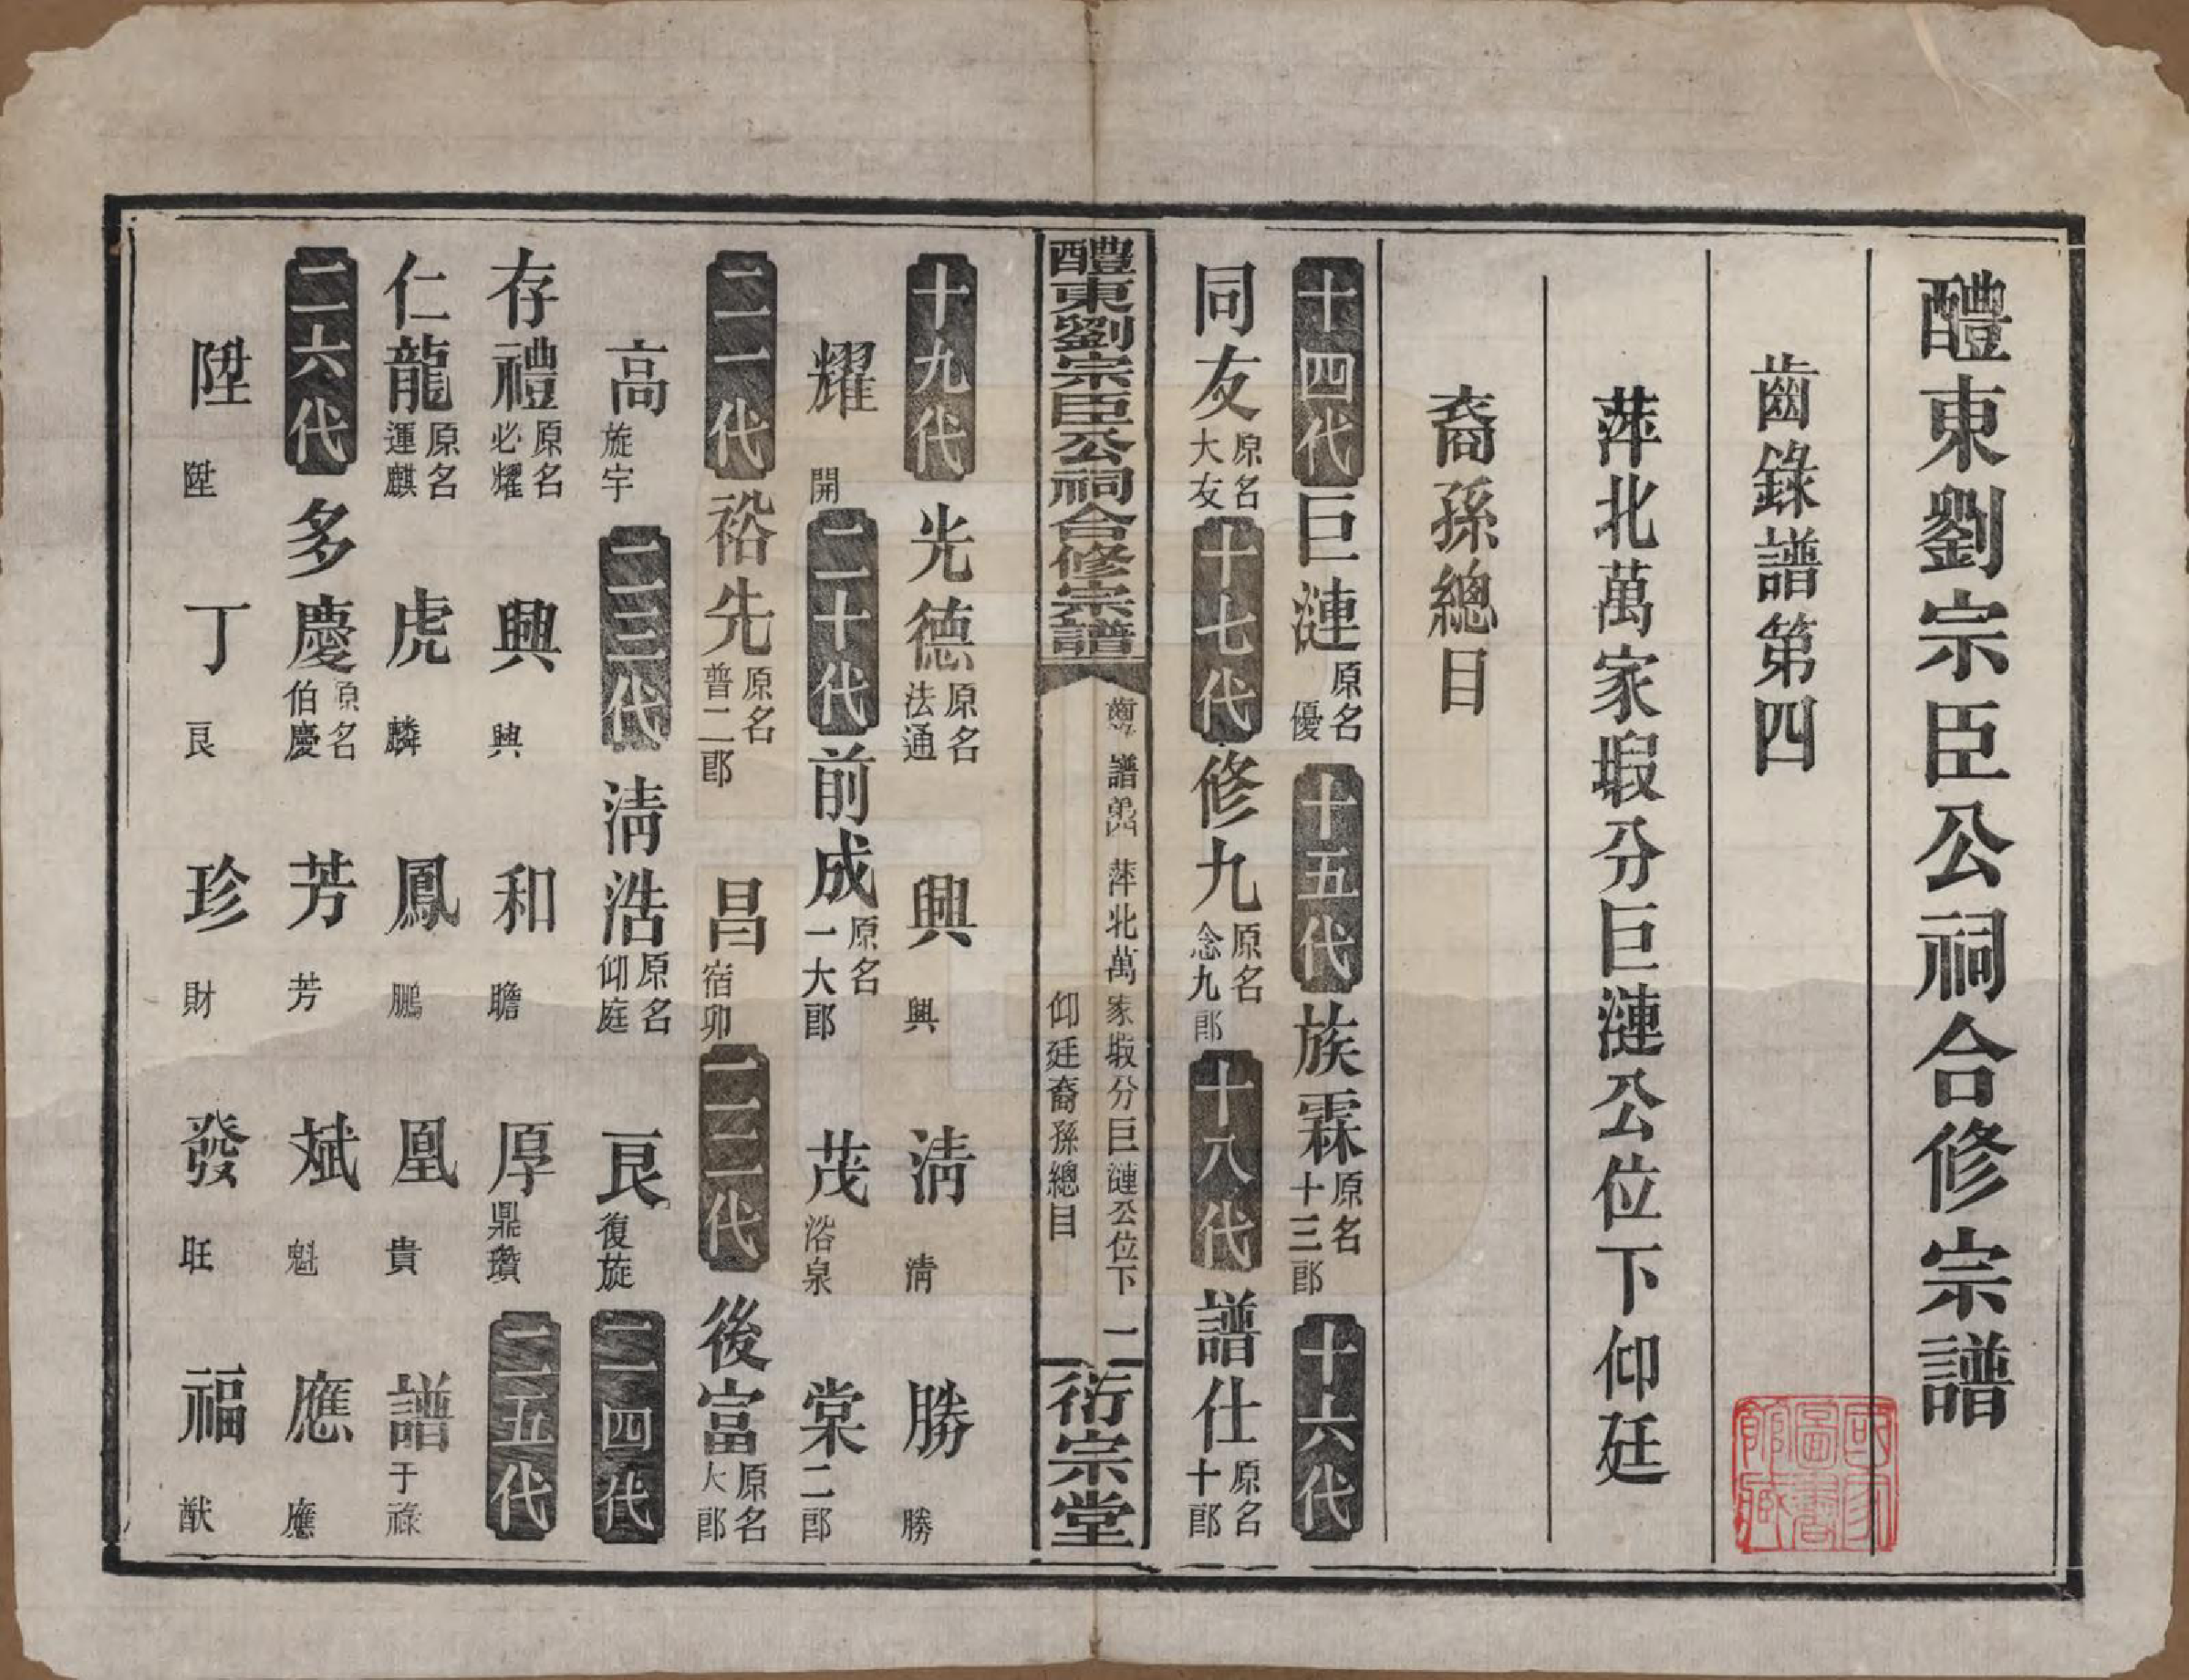 醴東劉宗臣公祠合修宗譜
齒錄譜第四
萍北萬家塅分巨漣公位下仰廷
裔孫總目
十四代 巨漣 原名優 十五代 族霖 原名十三郎 十六代
同友 原名大友 十七代 修九 原名念九郎 十八代 譜仕 原名十郎
醴東劉宗臣公祠合修宗譜 齒錄譜第四 萍北萬家塅分巨漣公位下 一 衍宗堂
仰廷裔孫總目
十九代 光德 原名法通 興 興 淸 清 勝 勝
耀 開 二十代 前成 原名一大郎 茂 浴泉 棠 二郎
二一代 裕先 原名普二郎 昌 宿卯 二二代 後富 原名大郎
高 旋宇 二三代 淸浩 原名仰庭 良 復旋 二四代
存禮 原名必耀 興 興 和 瞻 厚 鼎瓚 二五代
仁龍 原名運麒 虎 麟 鳳 鵬 凰 貴 譜 于祿
二六代 多慶 原名伯慶 芳 芳 斌 魁 應 應
陞 陞 丁 良 珍 財 發 旺 福 猷
國家圖書館藏